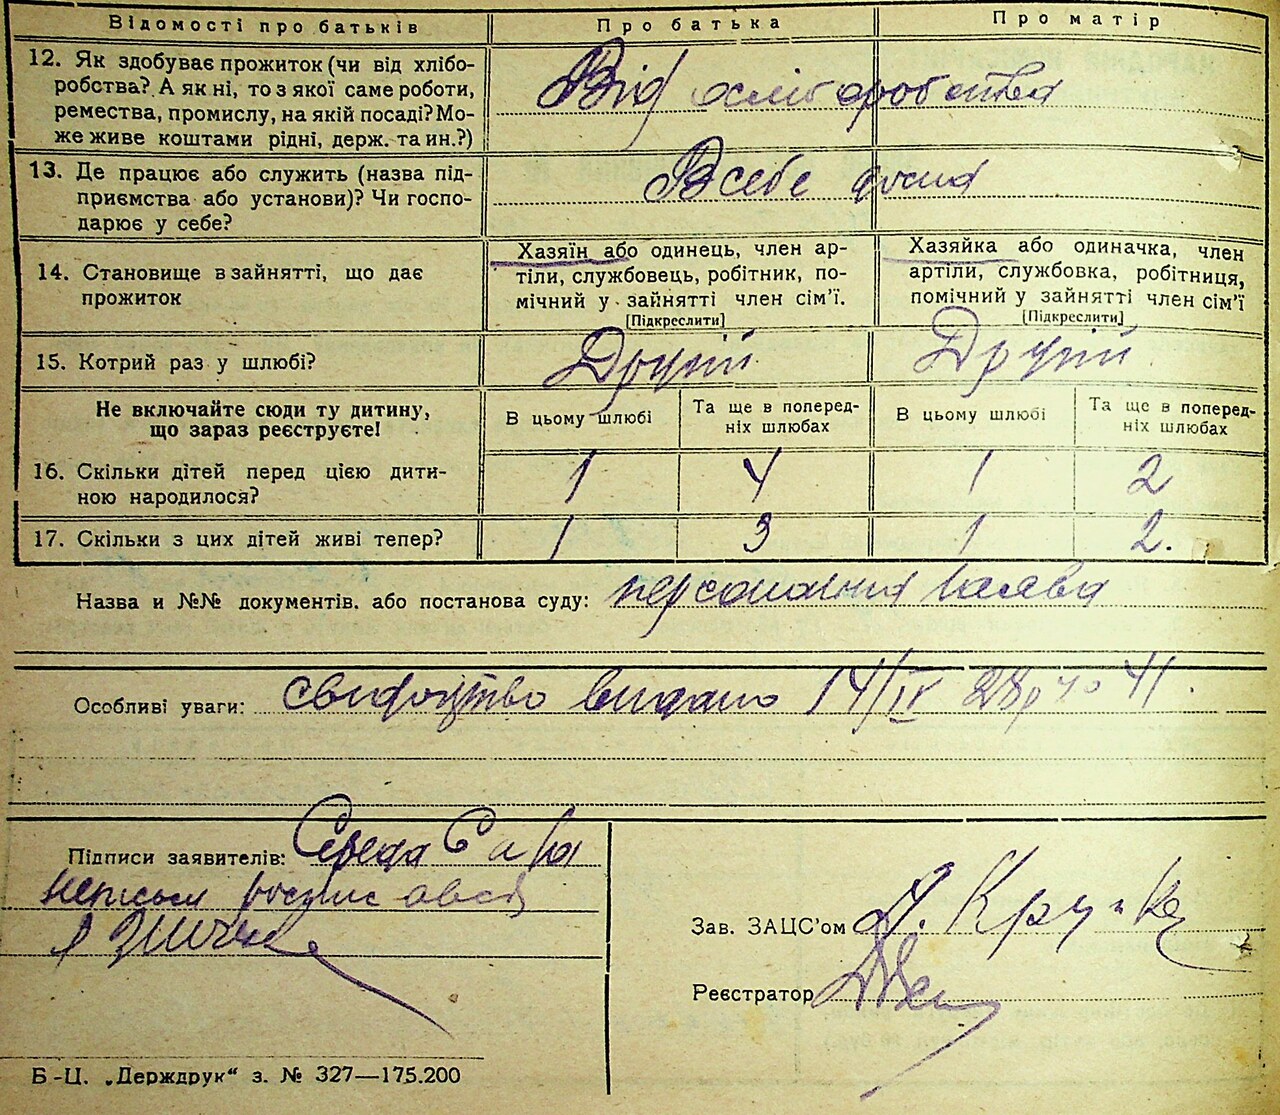 Відомості про батьків Про батька Про матір
12. Як здобуває прожиток (чи від хлібо-
робства? А як ні, то з якої саме роботи,
ремества, промислу, на якій посаді? Мо-
же живе коштами рідні, держ. та ин.?)
Від хліборобства
13. Де працює або служить (назва під-
приємства або установи)? Чи госпо-
дарює у себе?
В себе дома
14. Становище в зайнятті, що дає
прожиток
Хазяїн або одинець, член ар-
тіли, службовець, робітник, по-
мічний у зайнятті член сім'ї.
[Підкреслити]
Хазяйка або одиначка, член
артіли, службовка, робітниця,
помічний у зайнятті член сім'ї
[Підкреслити]
15. Котрий раз у шлюбі? Другий Другий
Не включайте сюди ту дитину,
що зараз реєструєте!
В цьому шлюбі
Та ще в поперед-
ніх шлюбах
В цьому шлюбі
Та ще в поперед-
ніх шлюбах
16. Скільки дітей перед цією дити-
ною народилося?
1 4 1 2
17. Скільки з цих дітей живі тепер? 1 3 1 2.
Назва и №№ документів. або постанова суду: персональна заява
Особливі уваги: свидоцтво видано 14/IV 28р 41.
Підписи заявителів: Середа Сава
неписьм
Зав. ЗАЦС'ом
Реєстратор
Б-Ц. „Держдрук“ з. № 327—175.200